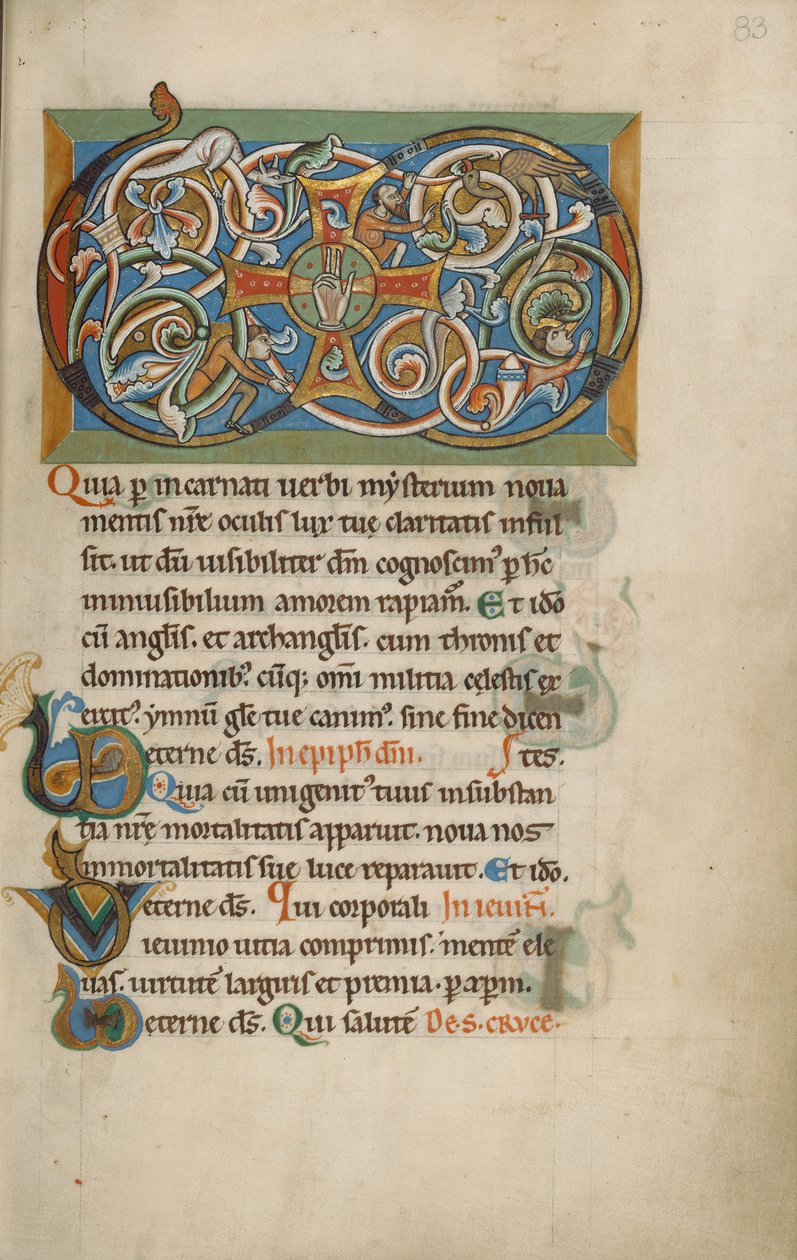 83
Quia ꝑ incarnati uerbi mysterium noua
mentis nr̄e oculis lux tuę claritatis inful
sit. ut dū uisibiliter dm̄ cognoscimꝰ ꝑ hc̄
ininuisibilium amorem rapiam̄. Et idō
cū angl̄is. et archangl̄is. cum thronis et
dominationibꝰ cūq; om̄i militia cęlestis ex
ercitꝰ. ymnū gl̄e tue canimꝰ. sine fine dicen
eterne ds̄. In epiph̄ dn̄i. tes.
Quia cū unigenitꝰ tuus in substan
tia nr̄ę mortalitatis apparuit. noua nos
inmortalitatis sue luce reparauit. Et idō.
eterne ds̄. Qui corporali In ieiuń.
ieiunio uitia comprimis. mentē ele
uas. uirtutē largiris et premia. ꝑ xp̄m.
eterne ds̄. Qui salutē De. S. crvce.